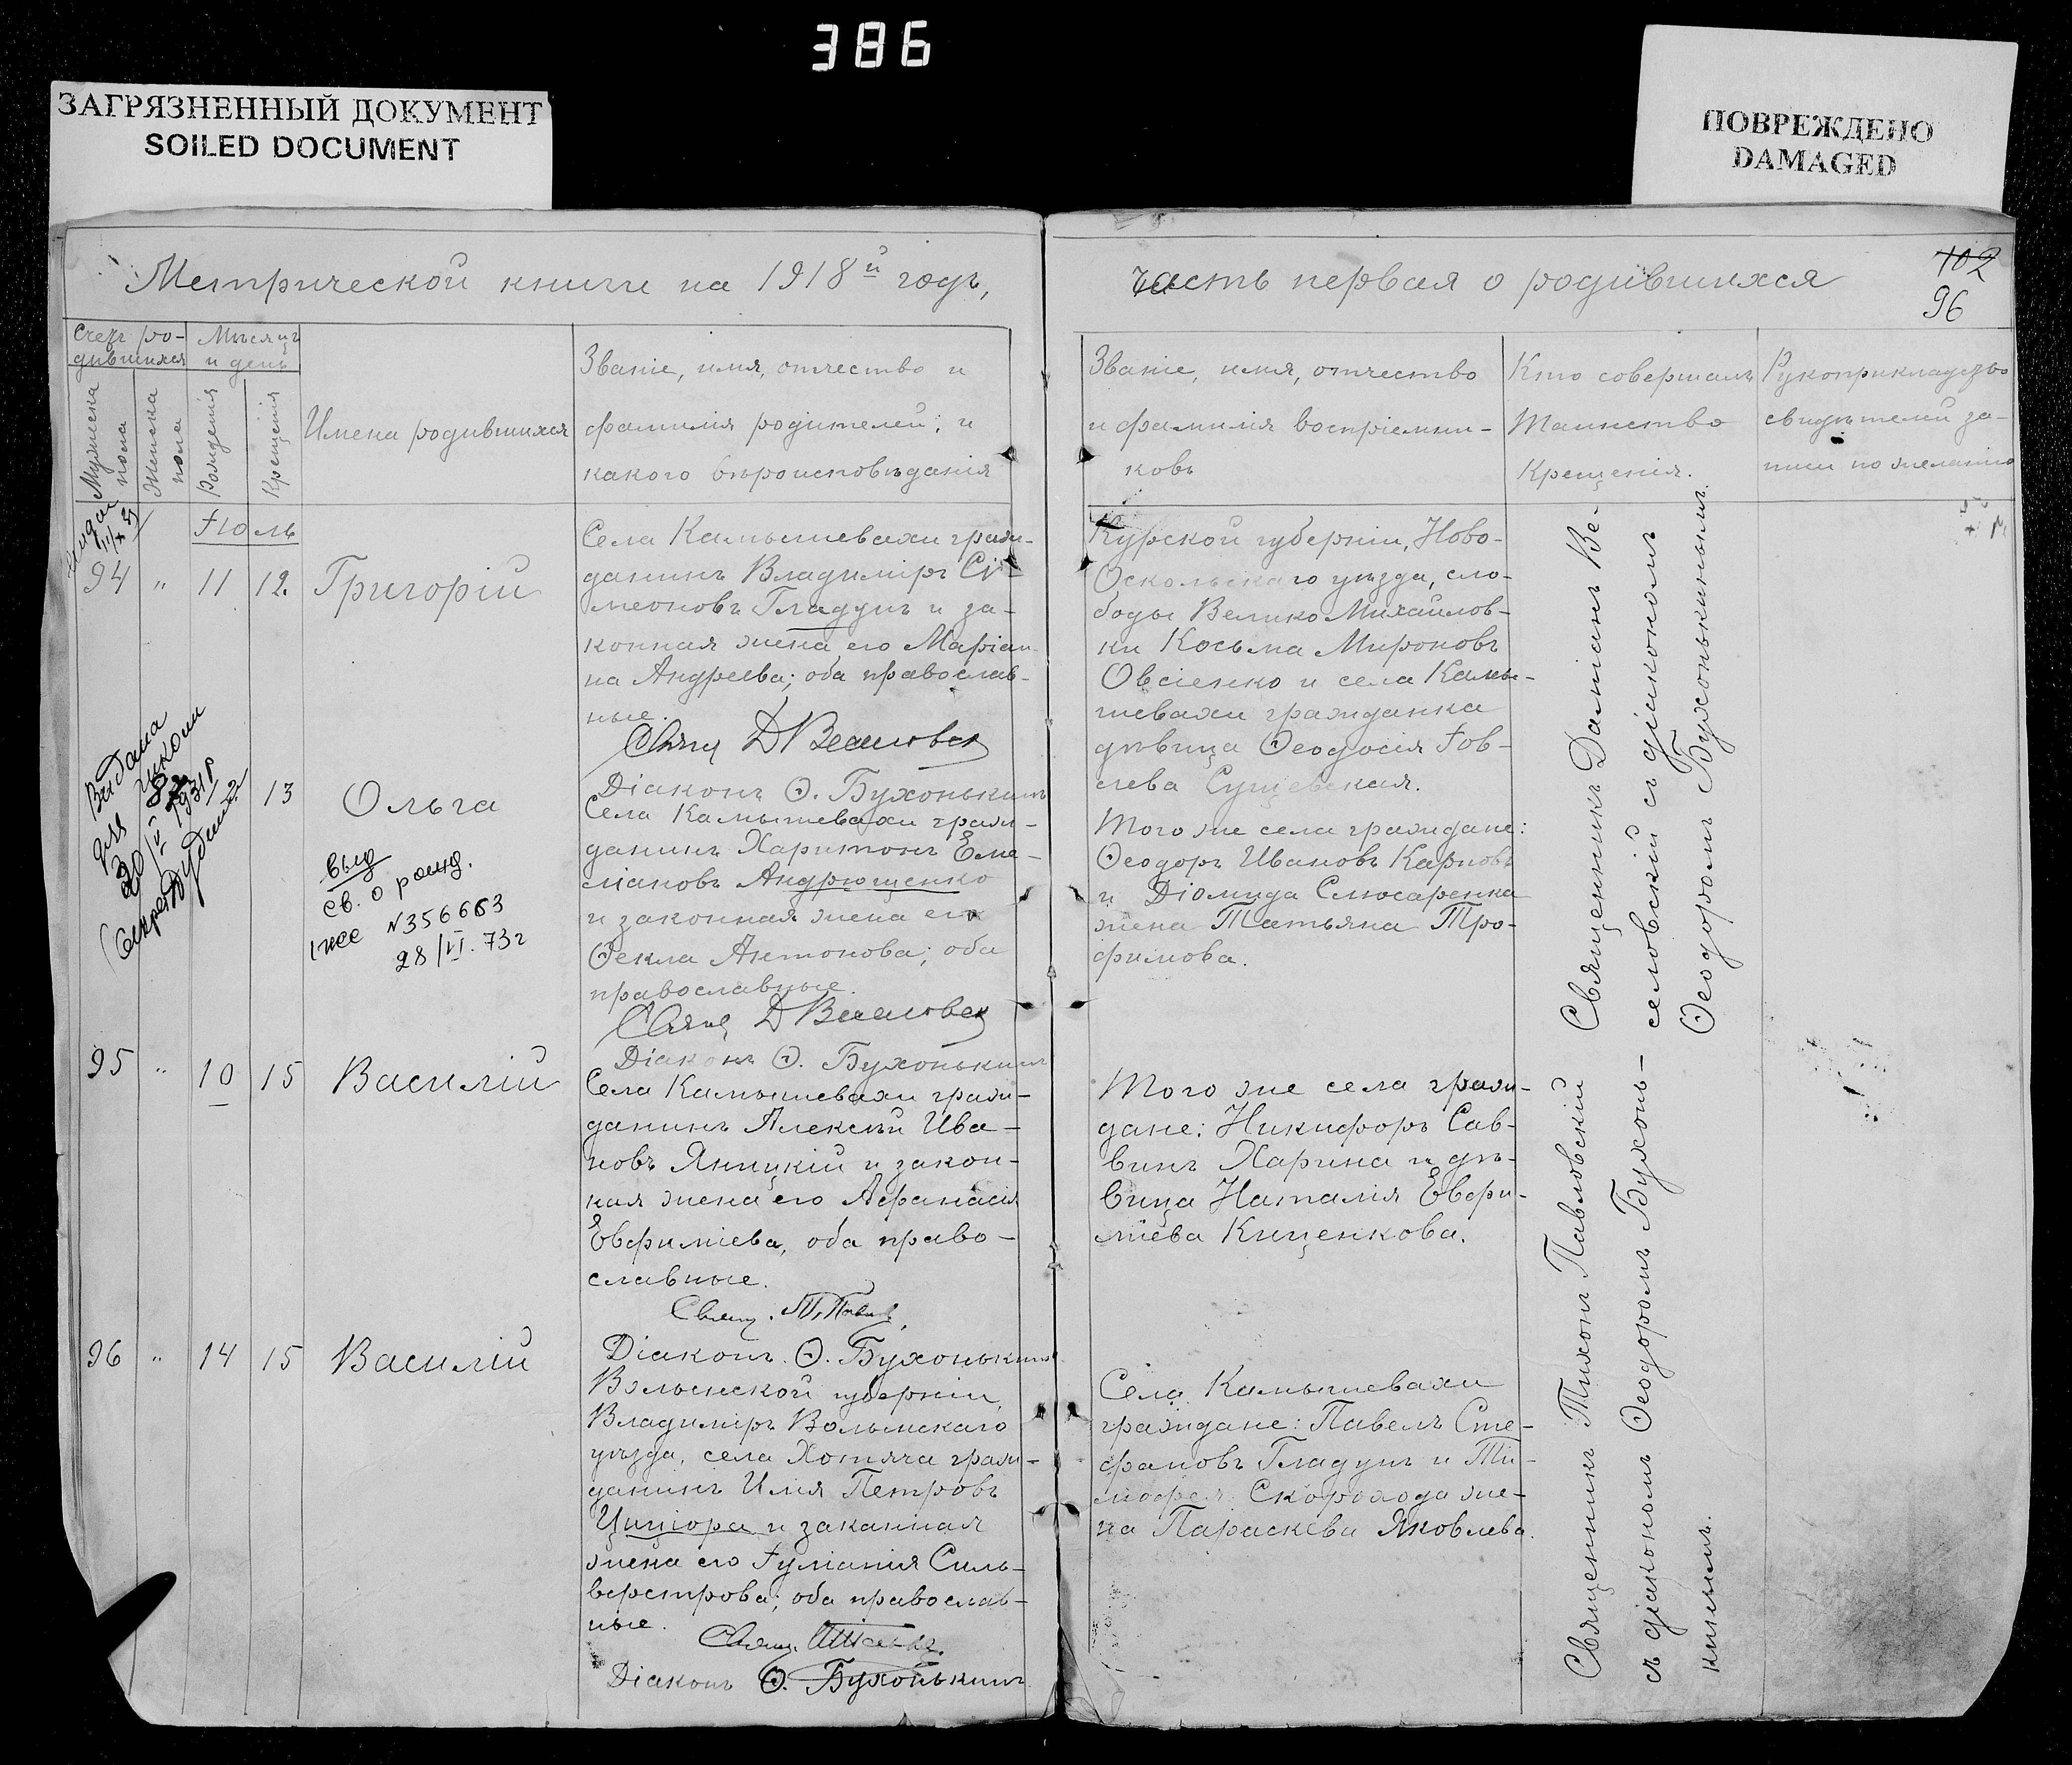 386
ЗАГРЯЗНЕННЫЙ ДОКУМЕНТ
SOILED DOCUMENT
ПОВРЕЖДЕНО
DAMAGED
Метрической книги на 1918й годъ,
часть первая о родившихся
102
96
Счетъ ро-
дившихся
Мужеска
пола
Женска
пола
Мѣсяцъ
и день
Рожденія
Крещенія
Имена родившихся
Званіе, имя, отчество и
фамилія родителей; и
какого вѣроисповѣданія
Званіе, имя, отчество
и фамилія воспріемни-
ковъ
Кто совершалъ
Таинство
Крещенія.
Рукоприкладство
свидѣтелей за-
писи по желанію
Іюль
94 " 11 12. Григорій
Села Камышевахи граж-
данинъ Владиміръ Сѵ-
меоновъ Гладунъ и за-
конная жена его Маріан-
на Андреева; оба православ-
ные.
Свящ Д Веселовск
Діаконъ Ѳ. Бухонькинъ
Курской губерніи, Ново-
Оскольскаго уѣзда, сло-
боды Велико Михайлов-
ки Косьма Мироновъ
Овсіенко и села Камы-
шевахи гражданка
дѣвица Ѳеодосія Іов-
лева Сущевская.
Видана
для
20/
1931 р
Секрет
13 Ольга
выд
св. о рожд.
N 356663
28/VI. 73 г
Села Камышевахи граж-
данинъ Харитонъ Еме-
ліановъ Андрющенко
и законная жена его
Ѳекла Антонова; оба
православные.
Свящ Д Веселовск
Діаконъ Ѳ. Бухонькинъ
Того же села граждане:
Ѳеодоръ Ивановъ Карповъ
и Діомида Слюсаренка
жена Татьяна Тро-
фимова.
95 " 10 15 Василій
Села Камышевахи граж-
данинъ Алексѣй Ива-
новъ Яницкій и закон-
ная жена его Афанасія
Евфиміева, оба право-
славные.
Свящ. Т. Павл
Діаконъ Ѳ. Бухонькинъ
Того же села граж-
дане: Никифоръ Сав-
винъ Харина и дѣ-
вица Наталія Евфи-
міева Киценкова.
96 " 14 15 Василій
Волынской губерніи,
Владиміръ Волынскаго
уѣзда, села Хотяча граж-
данинъ Илія Петровъ
Циціора и законная
жена его Іуліанія Силь-
верстрова; оба православ-
ные.
Свящ.
Діаконъ Ѳ. Бухонькинъ
Села Камышевахи
граждане: Павелъ Сте-
фановъ Гладунъ и Ти-
мофея Скорохода же-
на Параскева Яковлева.
Священникъ Даміанъ Ве-
селовскій съ діакономъ
Ѳеодоромъ Бухонькинымъ.
Священникъ Тихонъ Павловскій
съ діакономъ Ѳеодоромъ Бухонь-
кинымъ.